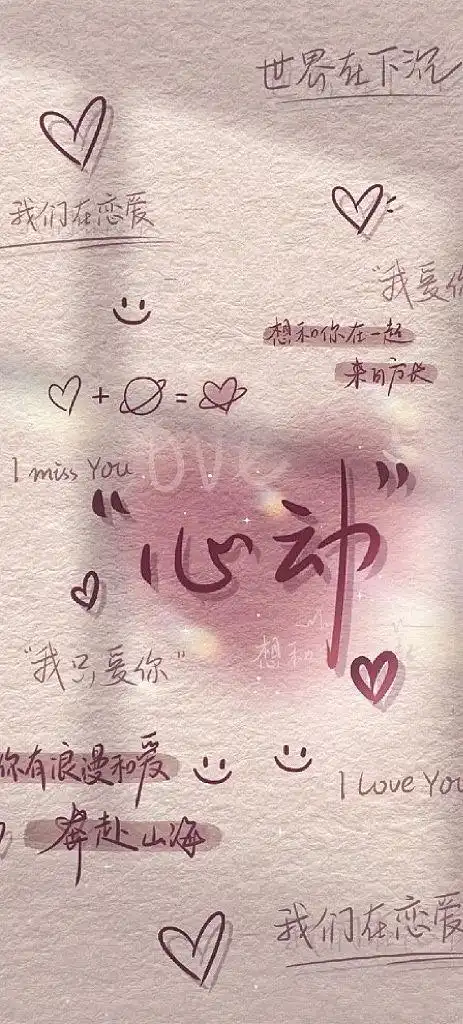 世界在下沉
我们在恋爱
"我爱你
想和你在一起
来日方长
+ =
I miss You
Love
"心动"
想和
"我只爱你"
你有浪漫和爱
奔赴山海
I Love You
我们在恋爱